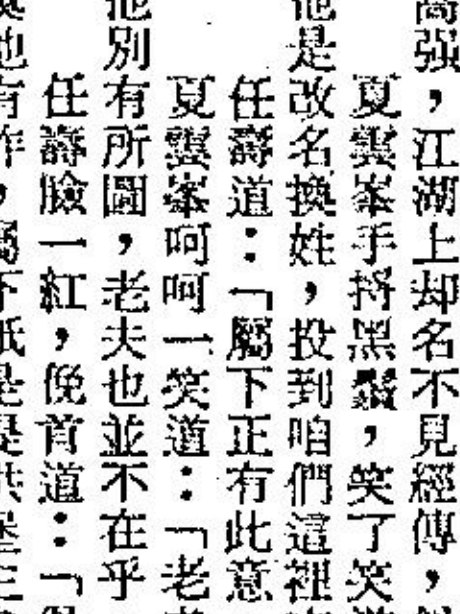 高强，江湖上却名不見經傳，
夏雲峯手捋黑鬚，笑了笑
他是改名換姓，投到咱們這裡
任壽道：「屬下正有此意
夏雲峯呵呵一笑道：「老
他別有所圖，老夫也並不在乎
任壽臉一紅，俛首道：「